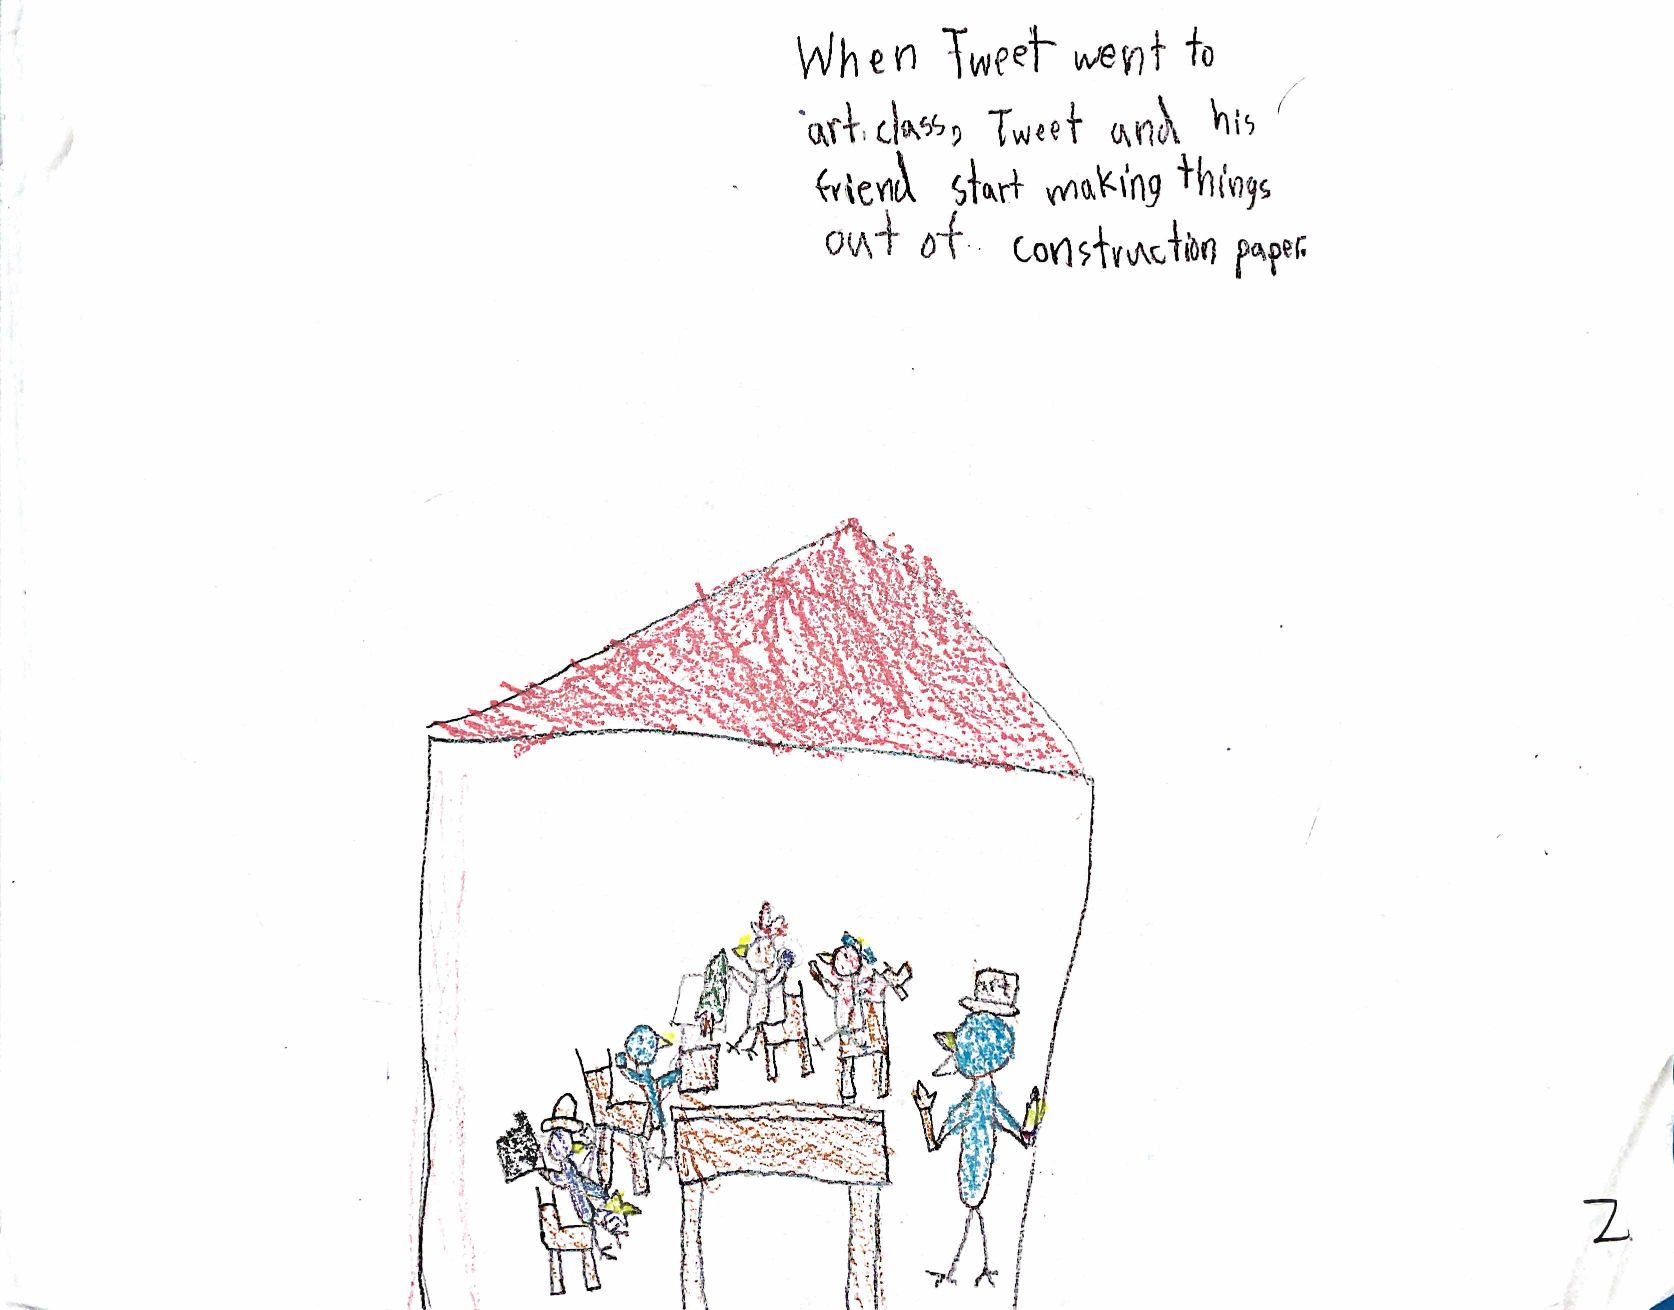 When Tweet went to
art class, Tweet and his
friend start making things
out of construction paper.
ART
2